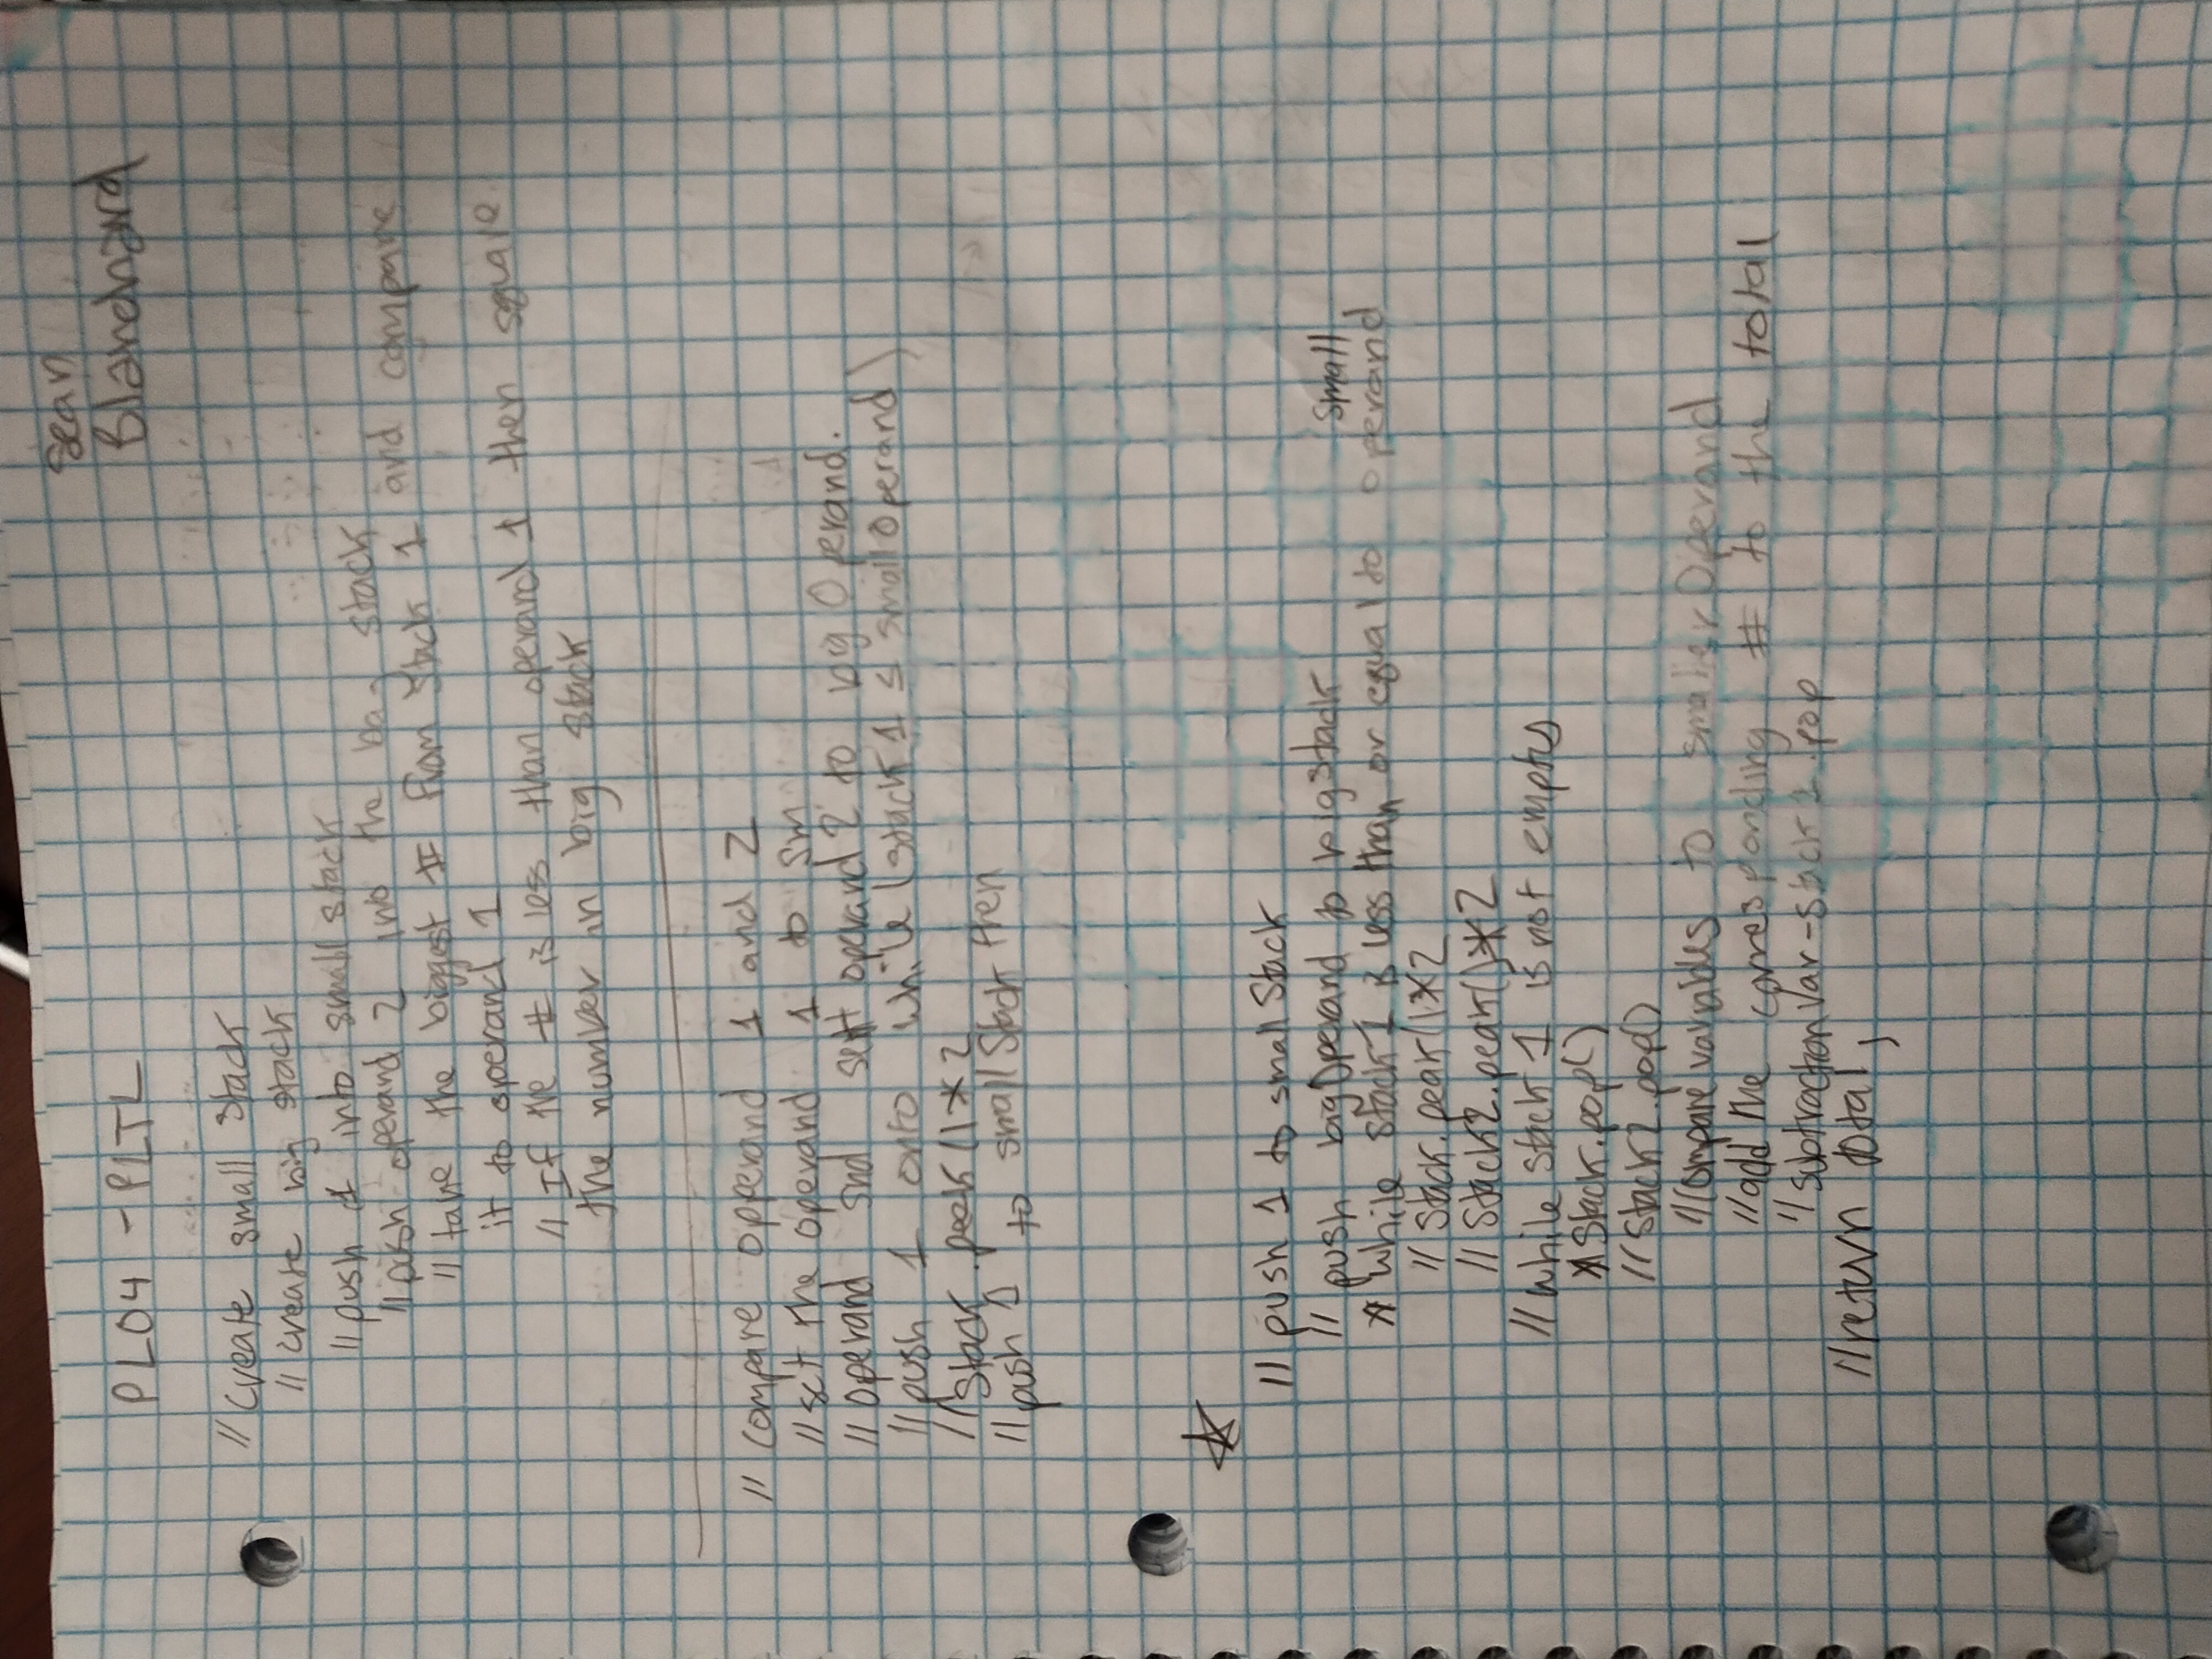 Sean
Blandhard
PL04 - PLTL
// Create small Stack
// create big stack
// push 1 into small stack
// push operand 2 into the stack
// take the biggest # from Stack 1 and compare
it to operand 1
// If the # is less than operand 1 then square
the number in big stack
// Compare opperand 1 and 2
// set the operand 1 to sm
// operand and sett operand 2 to big Operand.
// push 1 onto while (stack 1 ≤ small Operand)
// Stack.peek()*2
// push 1 to small Stack then
// push 1 to small Stack
// push bigOperand to bigstack
small
* while stack 1 is less than or equal to operand
// Stack.peak()*2
// Stack2.peak()*2
// while stack 1 is not empty
* Stack.pop()
// Stack2.pop()
// Compare variables to smallerOperand
// add the corresponding # to the total
// subtraction Var - stack 1.pop
// return total;